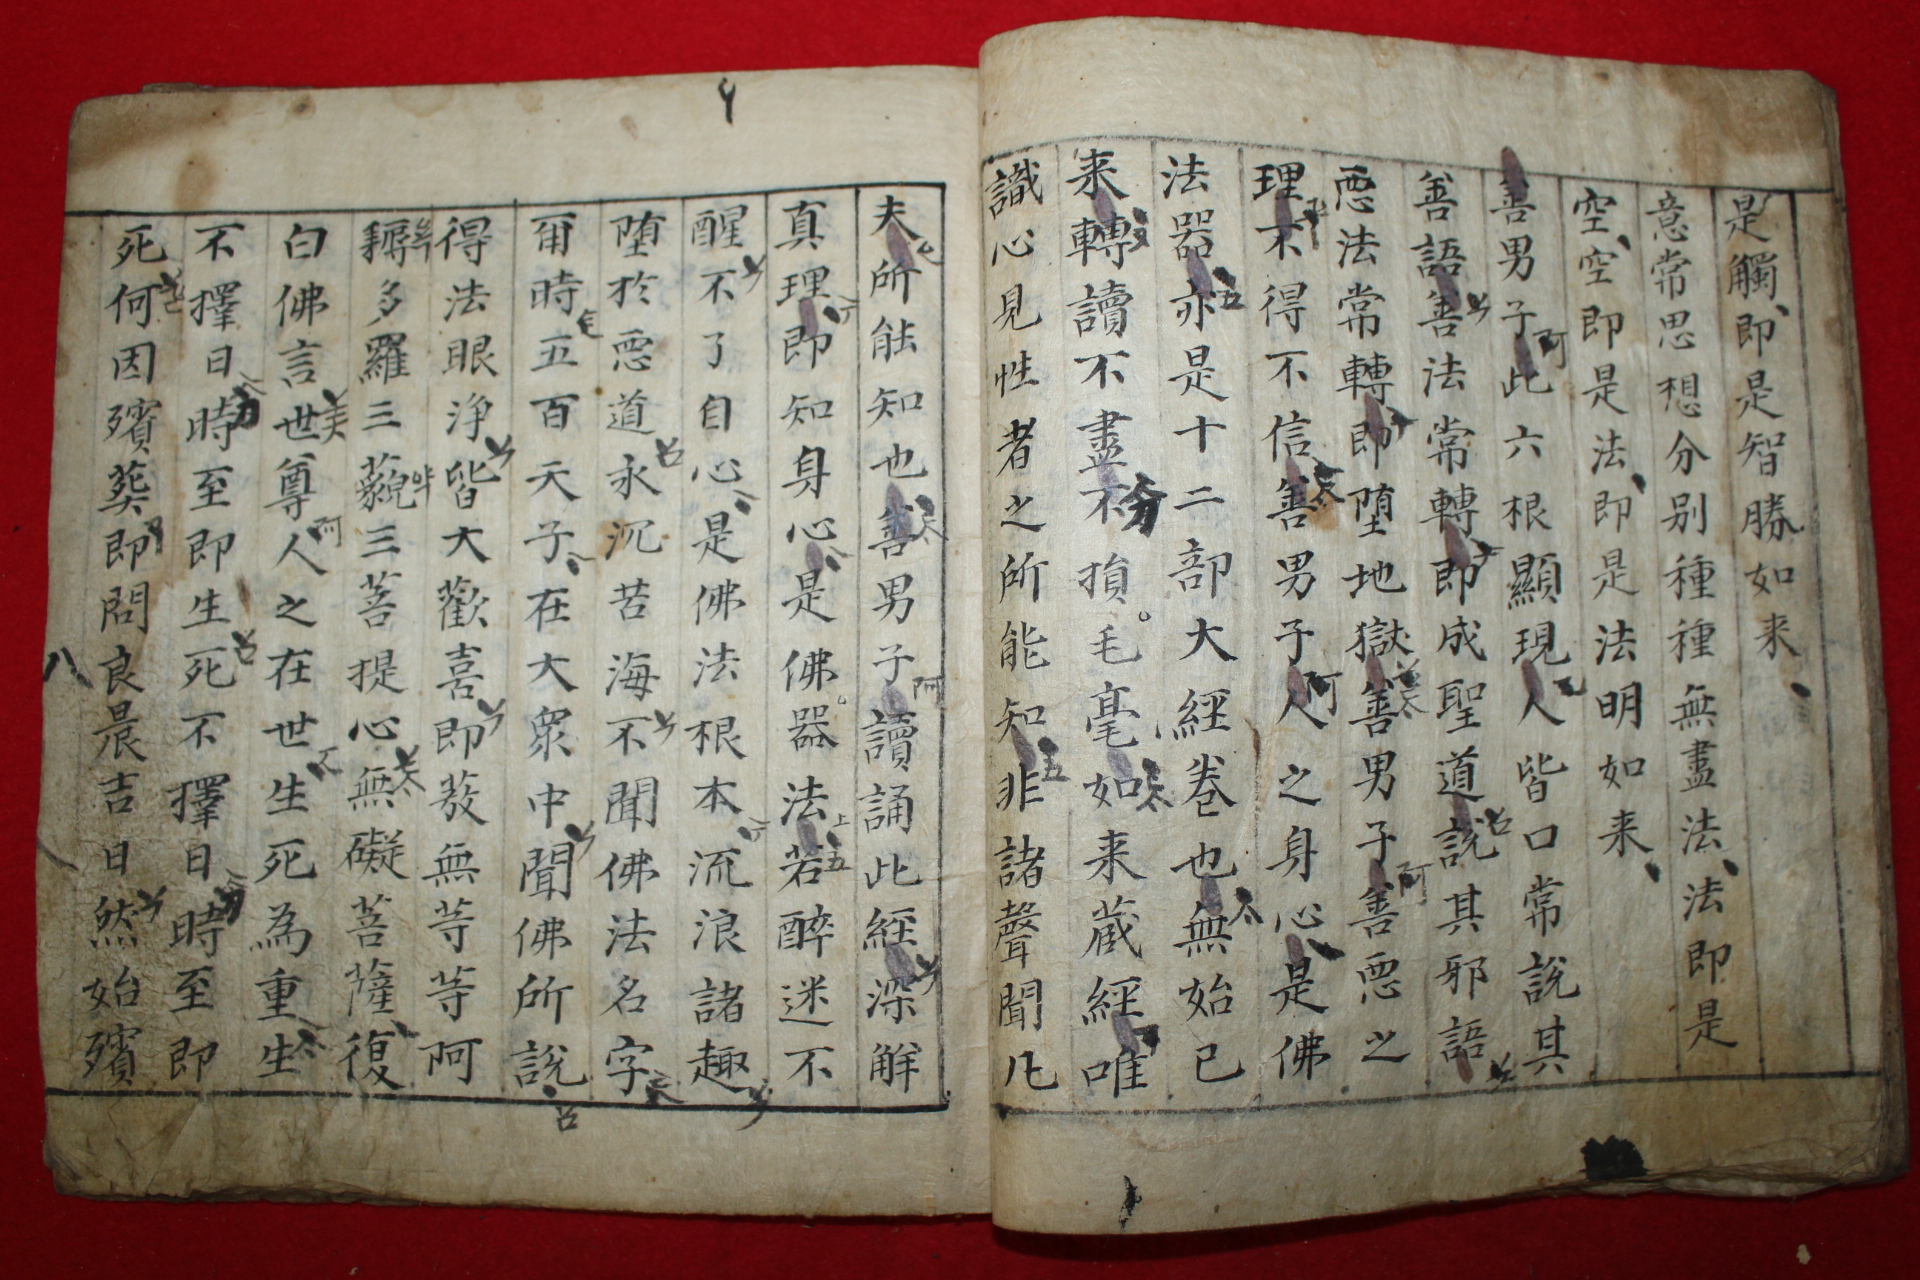 是觸即是智勝如来
意常思想分別種種無盡法法即是
空空即是法即是法明如来
善男子此六根顯現人皆口常說其
善語善法常轉即成聖道說其邪語
惡法常轉即堕地獄善男子善惡之
理不得不信善男子人之身心是佛
法器亦是十二部大經巻也無始已
来轉讀不盡不損毛毫如来蔵經唯
識心見性者之所能知非諸聲聞凡
夫所能知也善男子讀誦此經深觧
真理即知身心是佛器法若醉迷不
醒不了自心是佛法根本流浪諸趣
堕於惡道永沉苦海不聞佛法名字
甭時五百天子在大衆中聞佛所說
得法眼浄皆大歡喜即發無等等阿
耨多羅三藐三菩提心無礙菩薩復
白佛言世尊人之在世生死為重生
不擇日時至即生死不擇日時至即
死何因殯葬即問良晨吉日然始殯
八